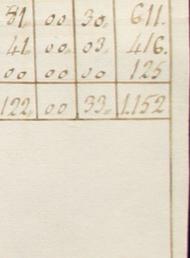 81 00 30. 611.
41. 00 03. 416.
00 00 00 125
122. 00 33. 1.152